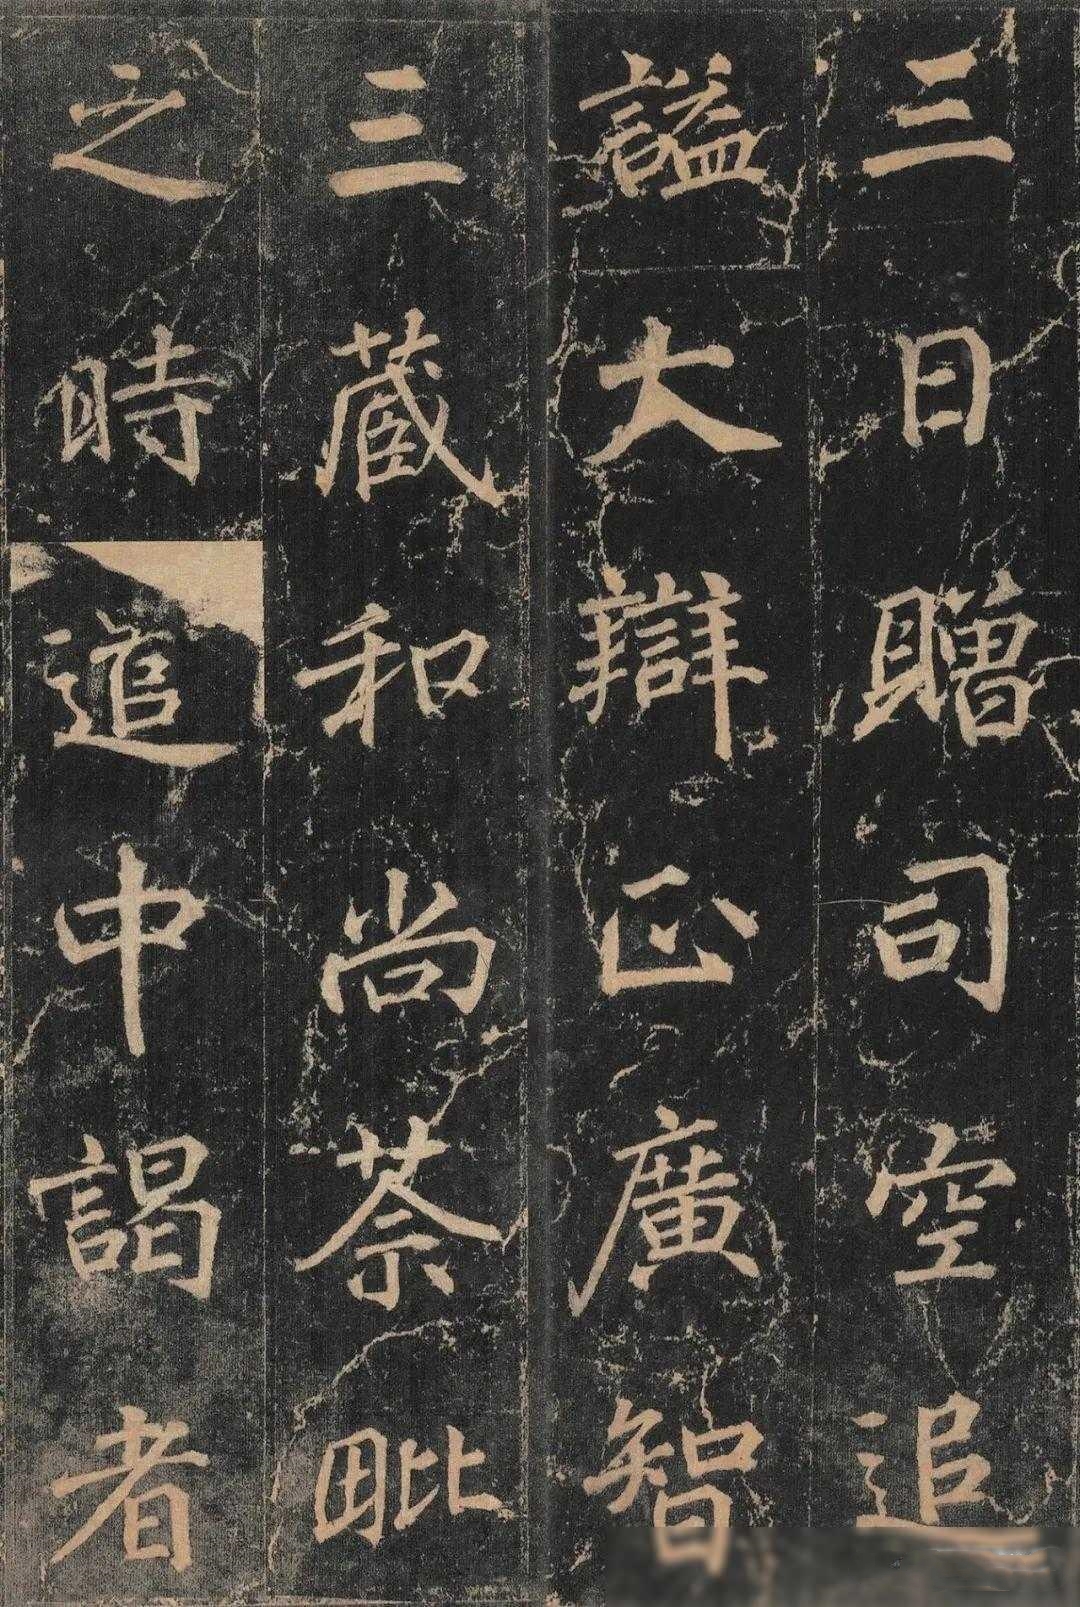 三日贈司空追
謚大辯正廣智
三藏和尚荼毗
之時遣中謁者